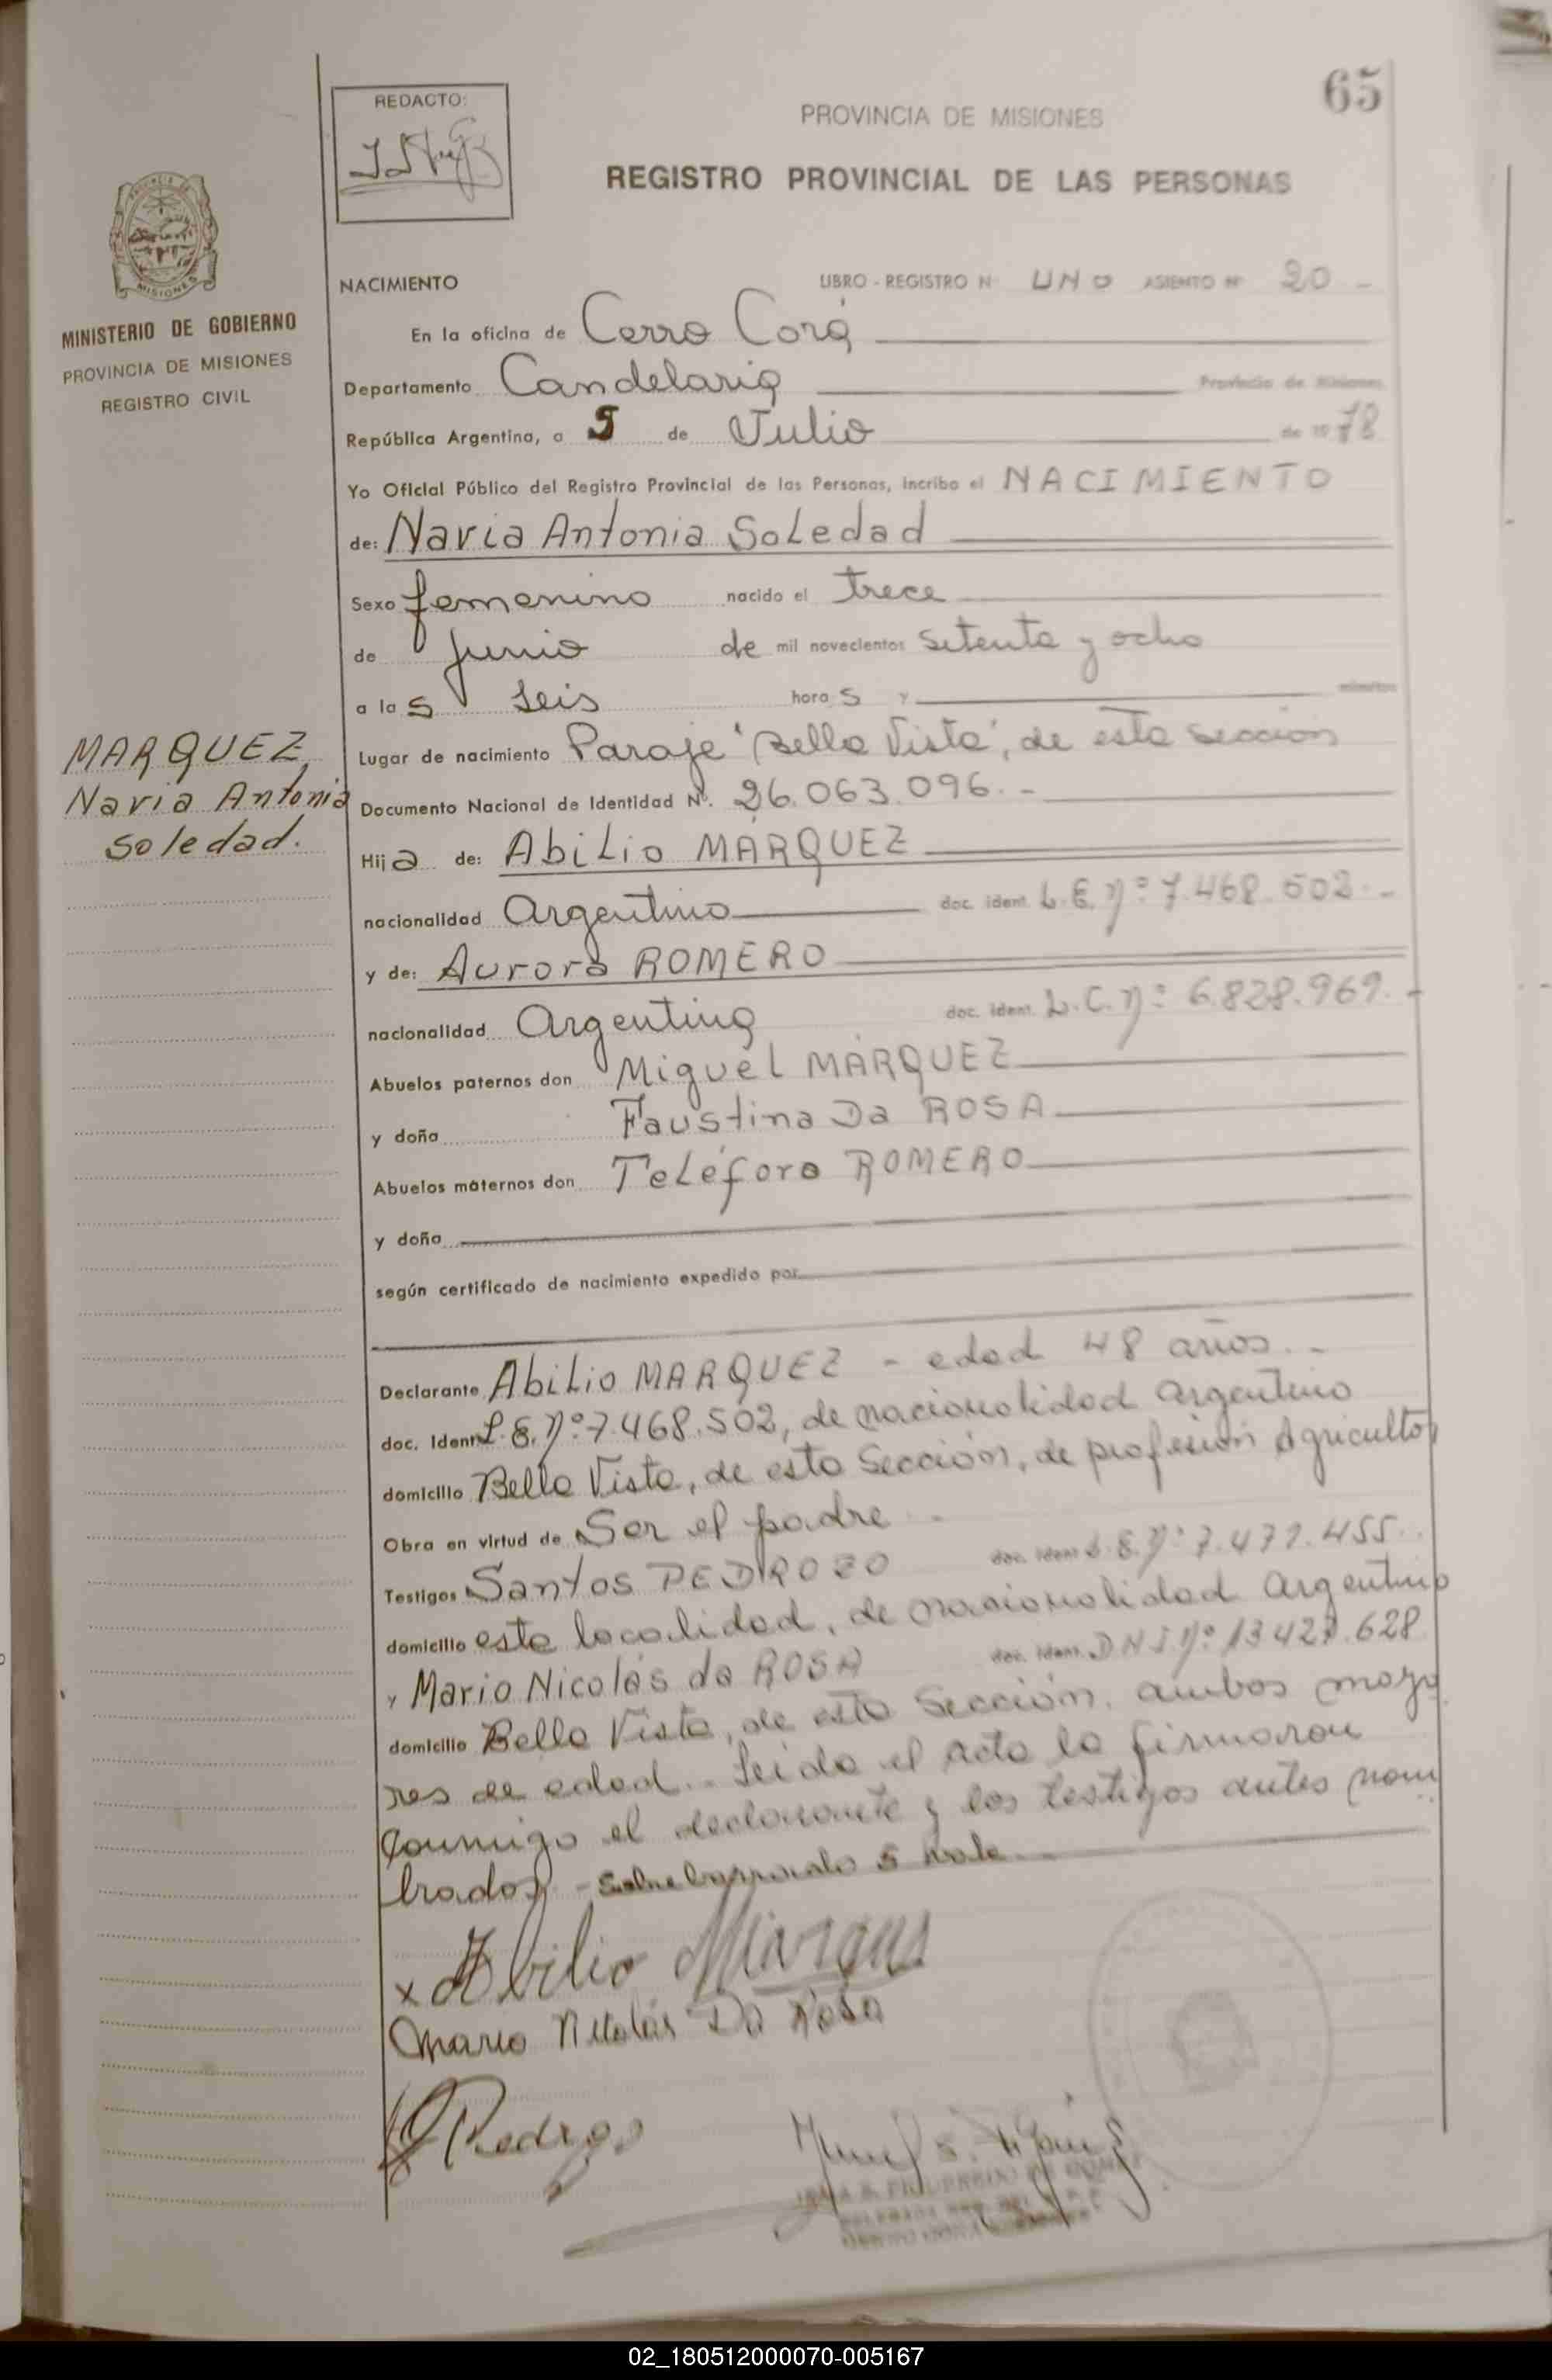 65
REDACTO:
PROVINCIA DE MISIONES
REGISTRO PROVINCIAL DE LAS PERSONAS
MISIONES
MINISTERIO DE GOBIERNO
PROVINCIA DE MISIONES
REGISTRO CIVIL
NACIMIENTO LIBRO - REGISTRO N° UNO ASIENTO N° 20 -
En la oficina de Cerro Corá
Departamento Candelaria Provincia de Misiones
República Argentina, a 5 de Julio de 1978
Yo Oficial Público del Registro Provincial de las Personas, incribo el NACIMIENTO
de: Navia Antonia Soledad
Sexo femenino nacido el trece
de Junio de mil novecientos setenta y ocho
a las seis horas y minutos
MARQUEZ,
Navia Antonia
Soledad.
Lugar de nacimiento Paraje "Bella Vista", de esta sección
Documento Nacional de Identidad N°. 26.063.096. -
Hija de: Abilio MÁRQUEZ
nacionalidad Argentino doc. ident. L.E. nº: 7.468.502. -
y de: Aurora ROMERO
nacionalidad Argentina doc. ident. L.C. nº: 6.828.969. -
Abuelos paternos don Miguel MÁRQUEZ
y doña Faustina Da ROSA
Abuelos maternos don Teléforo ROMERO
y doña
según certificado de nacimiento expedido por
Declarante Abilio MARQUEZ - edad 48 años. -
doc. Ident L.E. nº: 7.468.502, de nacionalidad argentino
domicilio Bella Vista, de esta Sección, de profesión Agricultor
Obra en virtud de Ser el padre
Testigos Santos PEDROZO doc. Ident L.E. nº: 7.471.455.
domicilio esta localidad, de nacionalidad argentino
y Mario Nicolás da ROSA doc. Ident. DNI nº 13.427.628
domicilio Bella Vista, de esta Sección, ambos mayo
res de edad. - Leída el acta la firmaron
conmigo el declarante y los testigos antes nom
brados. - Sobreborrado 5 vale. -
x Abilio Marques
Mario Nicolás Da Rosa
02_180512000070-005167